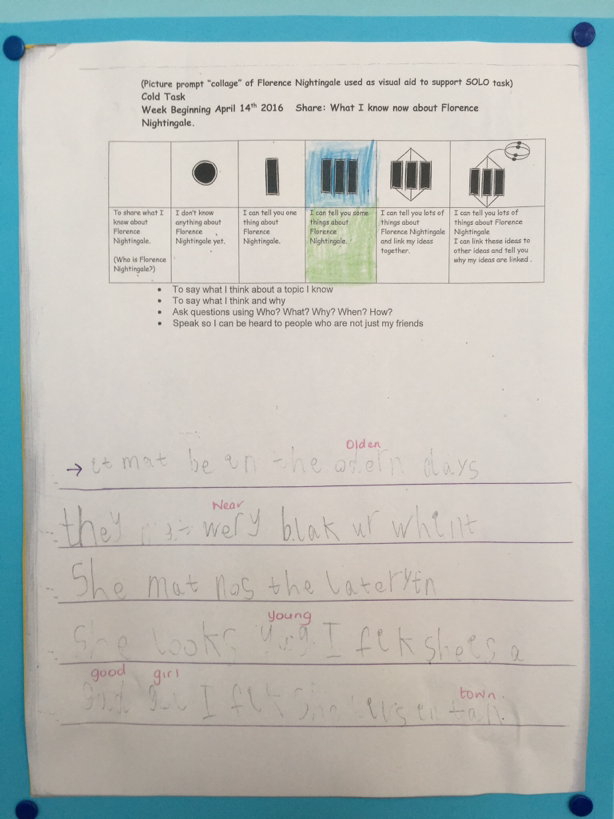 (Picture prompt "collage" of Florence Nightingale used as visual aid to support SOLO task)
Cold Task
Week Beginning April 14th 2016 Share: What I know now about Florence
Nightingale.
To share what I
know about
Florence
Nightingale.
(Who is Florence
Nightingale?)
I don't know
anything about
Florence
Nightingale yet.
I can tell you one
thing about
Florence
Nightingale.
I can tell you some
things about
Florence
Nightingale.
I can tell you lots of
things about
Florence Nightingale
and link my ideas
together.
I can tell you lots of
things about Florence
Nightingale
I can link these ideas to
other ideas and tell you
why my ideas are linked .
• To say what I think about a topic I know
• To say what I think and why
• Ask questions using Who? What? Why? When? How?
• Speak so I can be heard to people who are not just my friends
Olden
→ it mat be in the days
Near
they wery blak ur
She mat nos the
young
She looks I fik shees a
good girl
I
town.